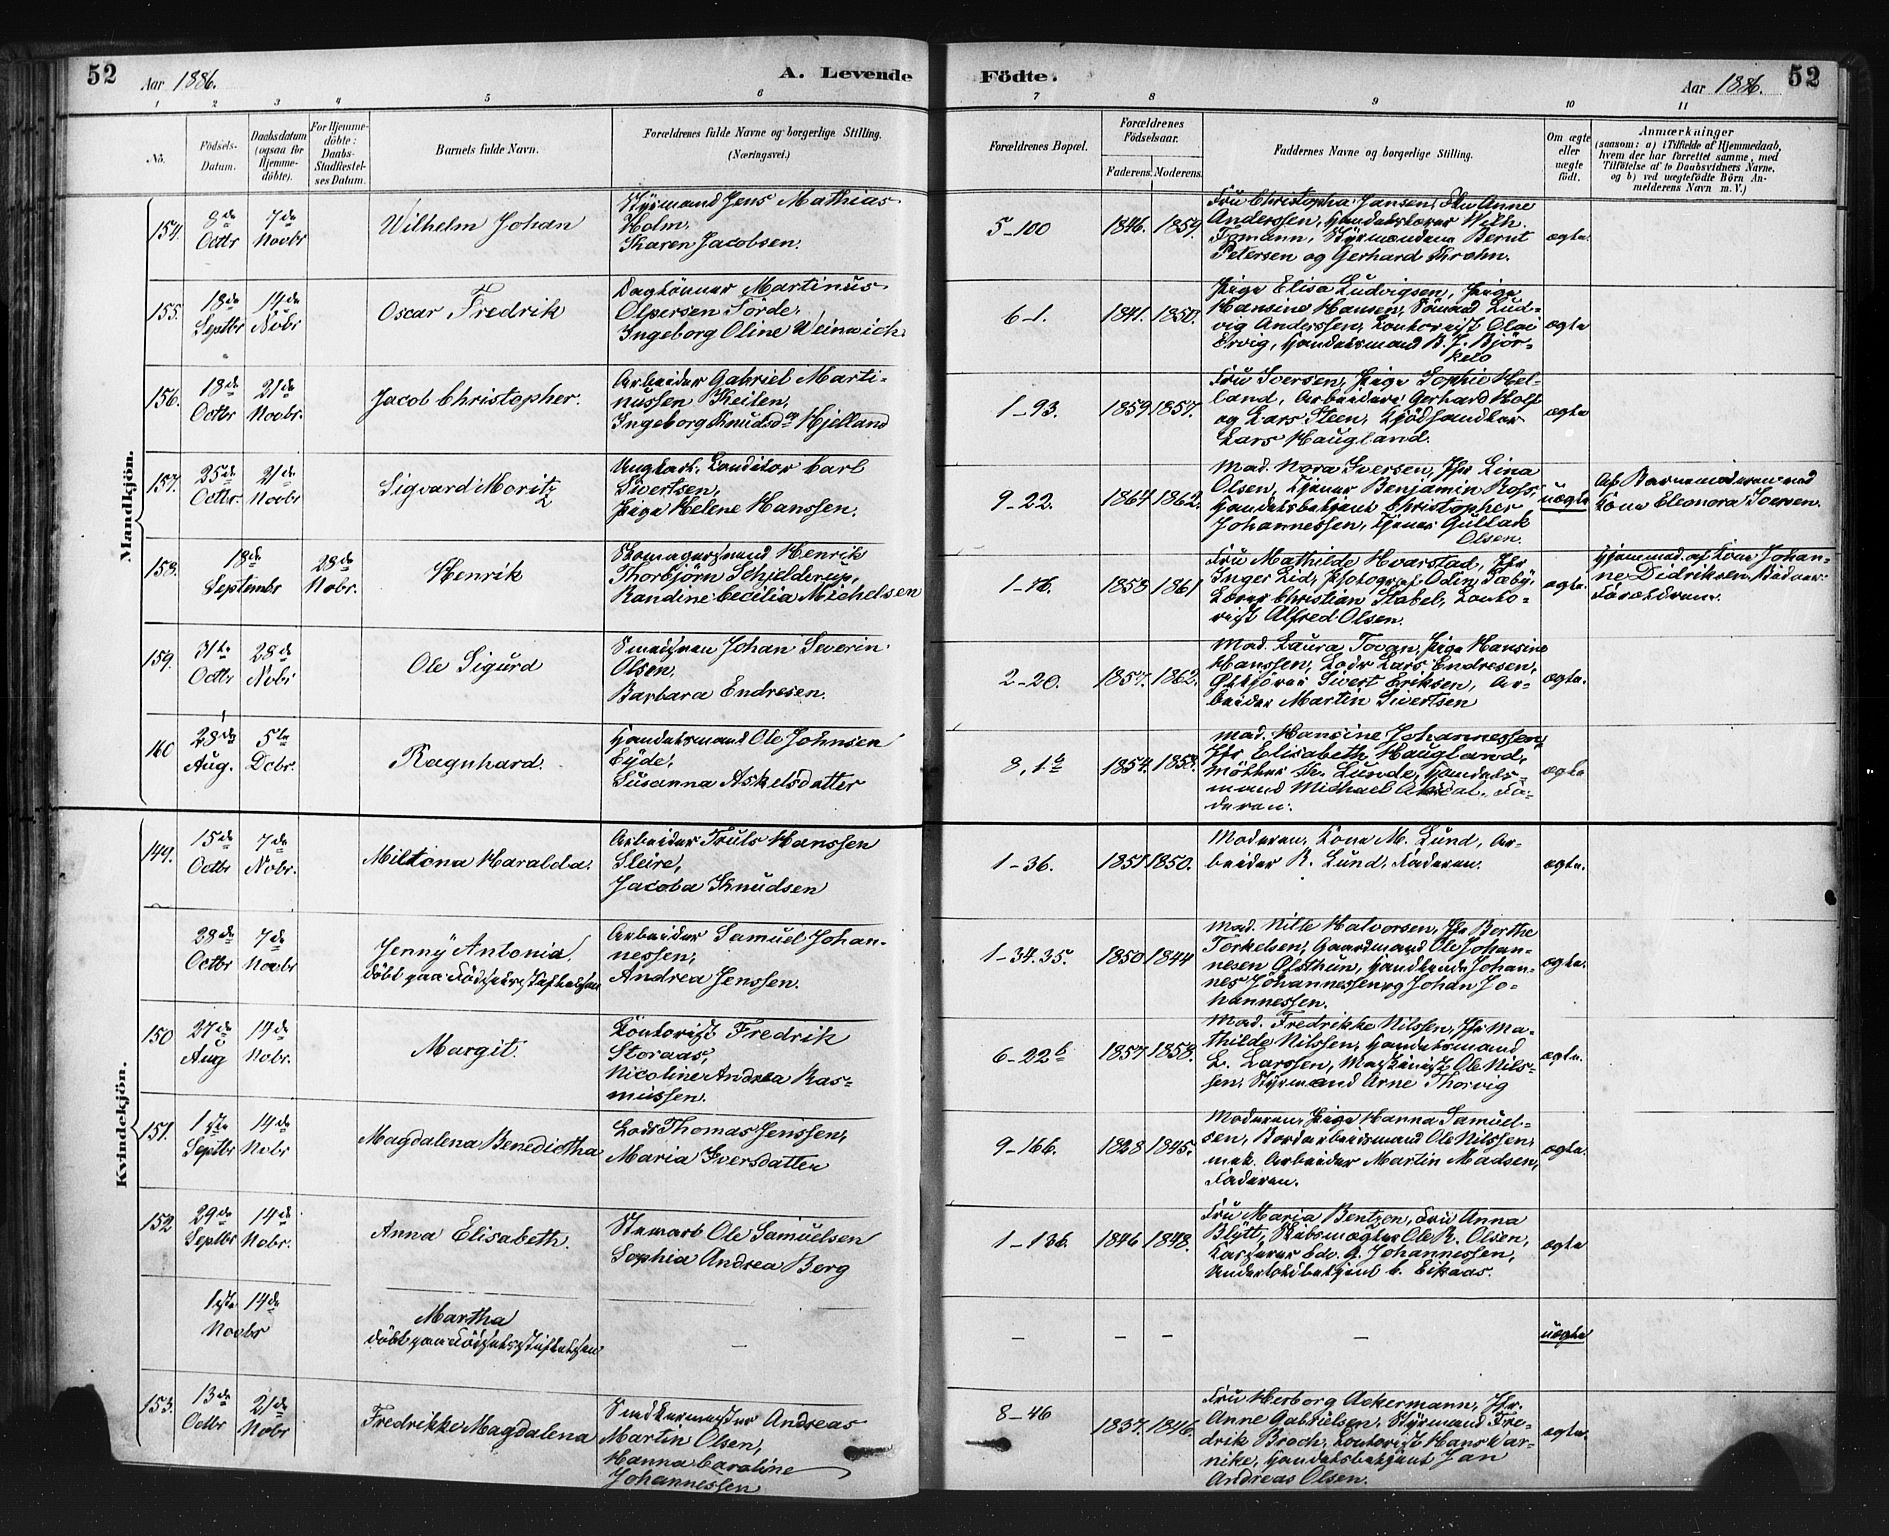 52
Aar 1886.
A. Levende
Födte.
Aar 1886.
52
1 2 3 4 5 6 7 8 9 10 11
No.
Födsels-
Datum.
Daabsdatum
(ogsaa for
Hjemme-
döbte).
For Hjemme-
döbte:
Daabs-
Stadfæstel-
ses Datum.
Barnets fulde Navn.
Forældrenes fulde Navne og borgerlige Stilling.
(Næringsvei.)
Forældrenes Bopæl.
Forældrenes
Födselsaar.
Faderens. Moderens.
Faddernes Navne og borgerlige Stilling.
Om ægte
eller
uægte
födt.
Anmærkninger
(saasom: a) i Tilfælde af Hjemmedaab,
hvem der har forrettet samme, med
Tilföielse af to Daabsvidners Navne,
og b) ved uægtefödte Börn An-
melderens Navn m. V.)
Mandkjön.
154.
8de
Octbr
7de
Novbr
Wilhelm Johan
Styrmand Jens Mathias
Holm,
Karen Jacobsen.
5-100
1846. 1859.
Fru Christopha Jansen, Fru Anne
Anderssen, Handelslærer Wilh.
Tömann, Styrmændene Bernt
Petersen og Gerhard Krohn.
ægte.
155.
18de
Septbr
14de
Nobr
Oscar Fredrik
Daglönner Martinus
Olpersen Förde,
Ingeborg Oline Weinwich.
6-1.
1841. 1850.
Pige Elisa Ludvigsen, Pige
Hansine Hansen, Sömand Lud-
vig Anderssen, Contorist Olai
Ervig, Handelsmand B. J. Björ-
kelo
ægte
156.
18de
Octbr
21de
Novbr.
Jacob Christopher.
Arbeider Gabriel Marti-
nussen Keilen,
Ingeborg Knudsdr Hjelland
1-93.
1859 1857.
Fru Iversen, Pige Sophie Hel-
land, Arbeidere Gerhard Holst
og Lars Steen, Kjödhandler
Lars Haugland.
ægte
157.
25de
Octbr.
21de
Novbr
Sigvard Moritz
Ungkarl, Conditor Carl
Sivertsen,
Pige Helene Hanssen.
9-22.
1864 1862.
Mad. Nora Iversen, Jfr Lina
Olsen, Tjener Benjamin Ross,
Handelsbetjent Christopher
Johannessen, Tjener Gullak
Olsen.
uægte
Af Barnemoderen ved
Kone Eleonora Iversen.
158.
18de
Septembr
28de
Nobr.
Henrik
Skomagersvend Henrik
Thorbjörn Schjelderup,
Randine Cecilia Michelsen
1-16.
1858 1861
Fru Mathilde Hvarstad, Jfr
Inger Lid, Photograf Odin Taby,
Lærer Christian Stabel, Conto-
rist Alfred Olsen.
ægte.
Hjemmed. af Kone Johan-
ne Didriksen, Vidner:
Forældrene.
159.
31te
Octbr
28de
Nobr
Ole Sigurd
Smedsven Johan Severin
Olsen,
Barbara Endresen.
2-20.
1857. 1862.
Mad. Laura Tovan, Pige Hansine
Hanssen, Lods Lars Endresen,
Ølkjörer Sivert Eriksen, Ar-
beider Martin Sivertsen
ægte.
160
28de
Aug.
5te
Dcbr.
Ragnhard.
Handelsmand Ole Johnsen
Eyde,
Susanna Askelsdatter
8, 1b
1854. 1858.
Mad. Hansine Johannessen,
Jfr Elisabeth Haugland,
Möller Th. Lunde, Handels-
mand Michael Aksdal, Fa-
deren.
ægte
Kvindekjön.
149.
15de
Octbr
7de
Nobr.
Miltona Haralda.
Arbeider Truls Hanssen
Sleire,
Jacoba Knudsen
1-36.
1851 1850.
Moderen, Kone M. Lund, Ar-
beider R. Lund, Faderen.
ægte.
28de
Octbr
7de
Novbr
Jenny Antonia.
döbt paa Födselsstiftelsen
Arbeider Samuel Johan-
nessen,
Andrea Jenssen.
1-34.35.
1850 1844
Mad. Nille Halvorsen, Jfr Berthe
Torkelsen, Gaardmand Ole Johan-
nesen Ofsthun, Handlende Johan-
nes Johannessen og Johan Jo-
hannessen.
ægte.
150
27de
Aug
14de
Nobr.
Margit.
Contorist Fredrik
Storaas,
Nicoline Andrea Ras-
mussen.
6-22b
1857. 1858.
Mad. Fredrikke Nilssen, Jfr Ma-
thilde Nilssen, Handelsmand
L. Larssen, Maskinist Ole Nils-
sen, Styrmand Arne Thorvig
ægte.
151.
1ste
Septbr
14de
Nobr
Magdalena Benedictha
Lods Thomas Jenssen,
Maria Iversdatter
9-166.
1828 1845.
Moderen, Pige Hanna Samuel-
sen, Bordarbeidsmand Ole Nilssen,
mek. Arbeider Martin Madsen,
Faderen.
ægte.
152
29de
Septbr
14de
Nobr.
Anna Elisabeth.
Stewart Ole Samuelsen
Sophia Andrea Berg
1-136.
1846 1848.
Fru Maria Bentzen, Fru Anna
Blytt, Skibsmægler Ole R. Olsen,
Kasserer Edv. G. Johannessen,
Undertoldbetjent C. Eikaas.
ægte
1ste
14de
Novbr
Martha
döbt paa Födselsstiftelsen
-
- - - -
uægte
153.
13de
Octbr
21de
Nobr
Fredrikke Magdalena
Snedkermester Andreas
Martin Olsen,
Hanna Caroline
Johannessen
8-46
1837. 1846.
Fru Herborg Ackermann, Jfr.
Anne Gabrielsen, Styrmand Fre-
drik Broch, Contorist Hans War-
nike, Handelsbetjent Jan
Andreas Olsen.
ægte.